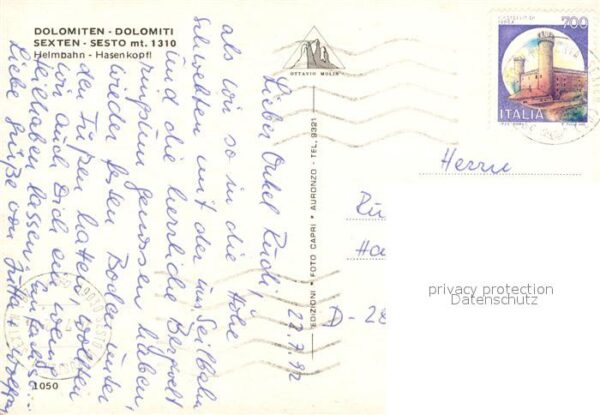 DOLOMITEN - DOLOMITI
SEXTEN - SESTO mt. 1310
Helmbahn - Hasenkopfl
OTTAVIO MOLIN
CASTELLO DI
IVREA
700
ITALIA
22.7.92
Lieber Onkel Rudi,
als wir so in die Höhe
schwebten mit der Seilbahn
und die herrliche Bergwelt
ringsum genossen haben,
wieder festen Boden unter
den Füßen hatten, wollten
wir auch Dich ein wenig
teilhaben lassen.
Liebe Grüße von Jutta +
EDIZIONI * FOTO CAPRI * AURONZO - TEL. 9321
Herrn
Ru
Ha
D-28
privacy protection
Datenschutz
1050